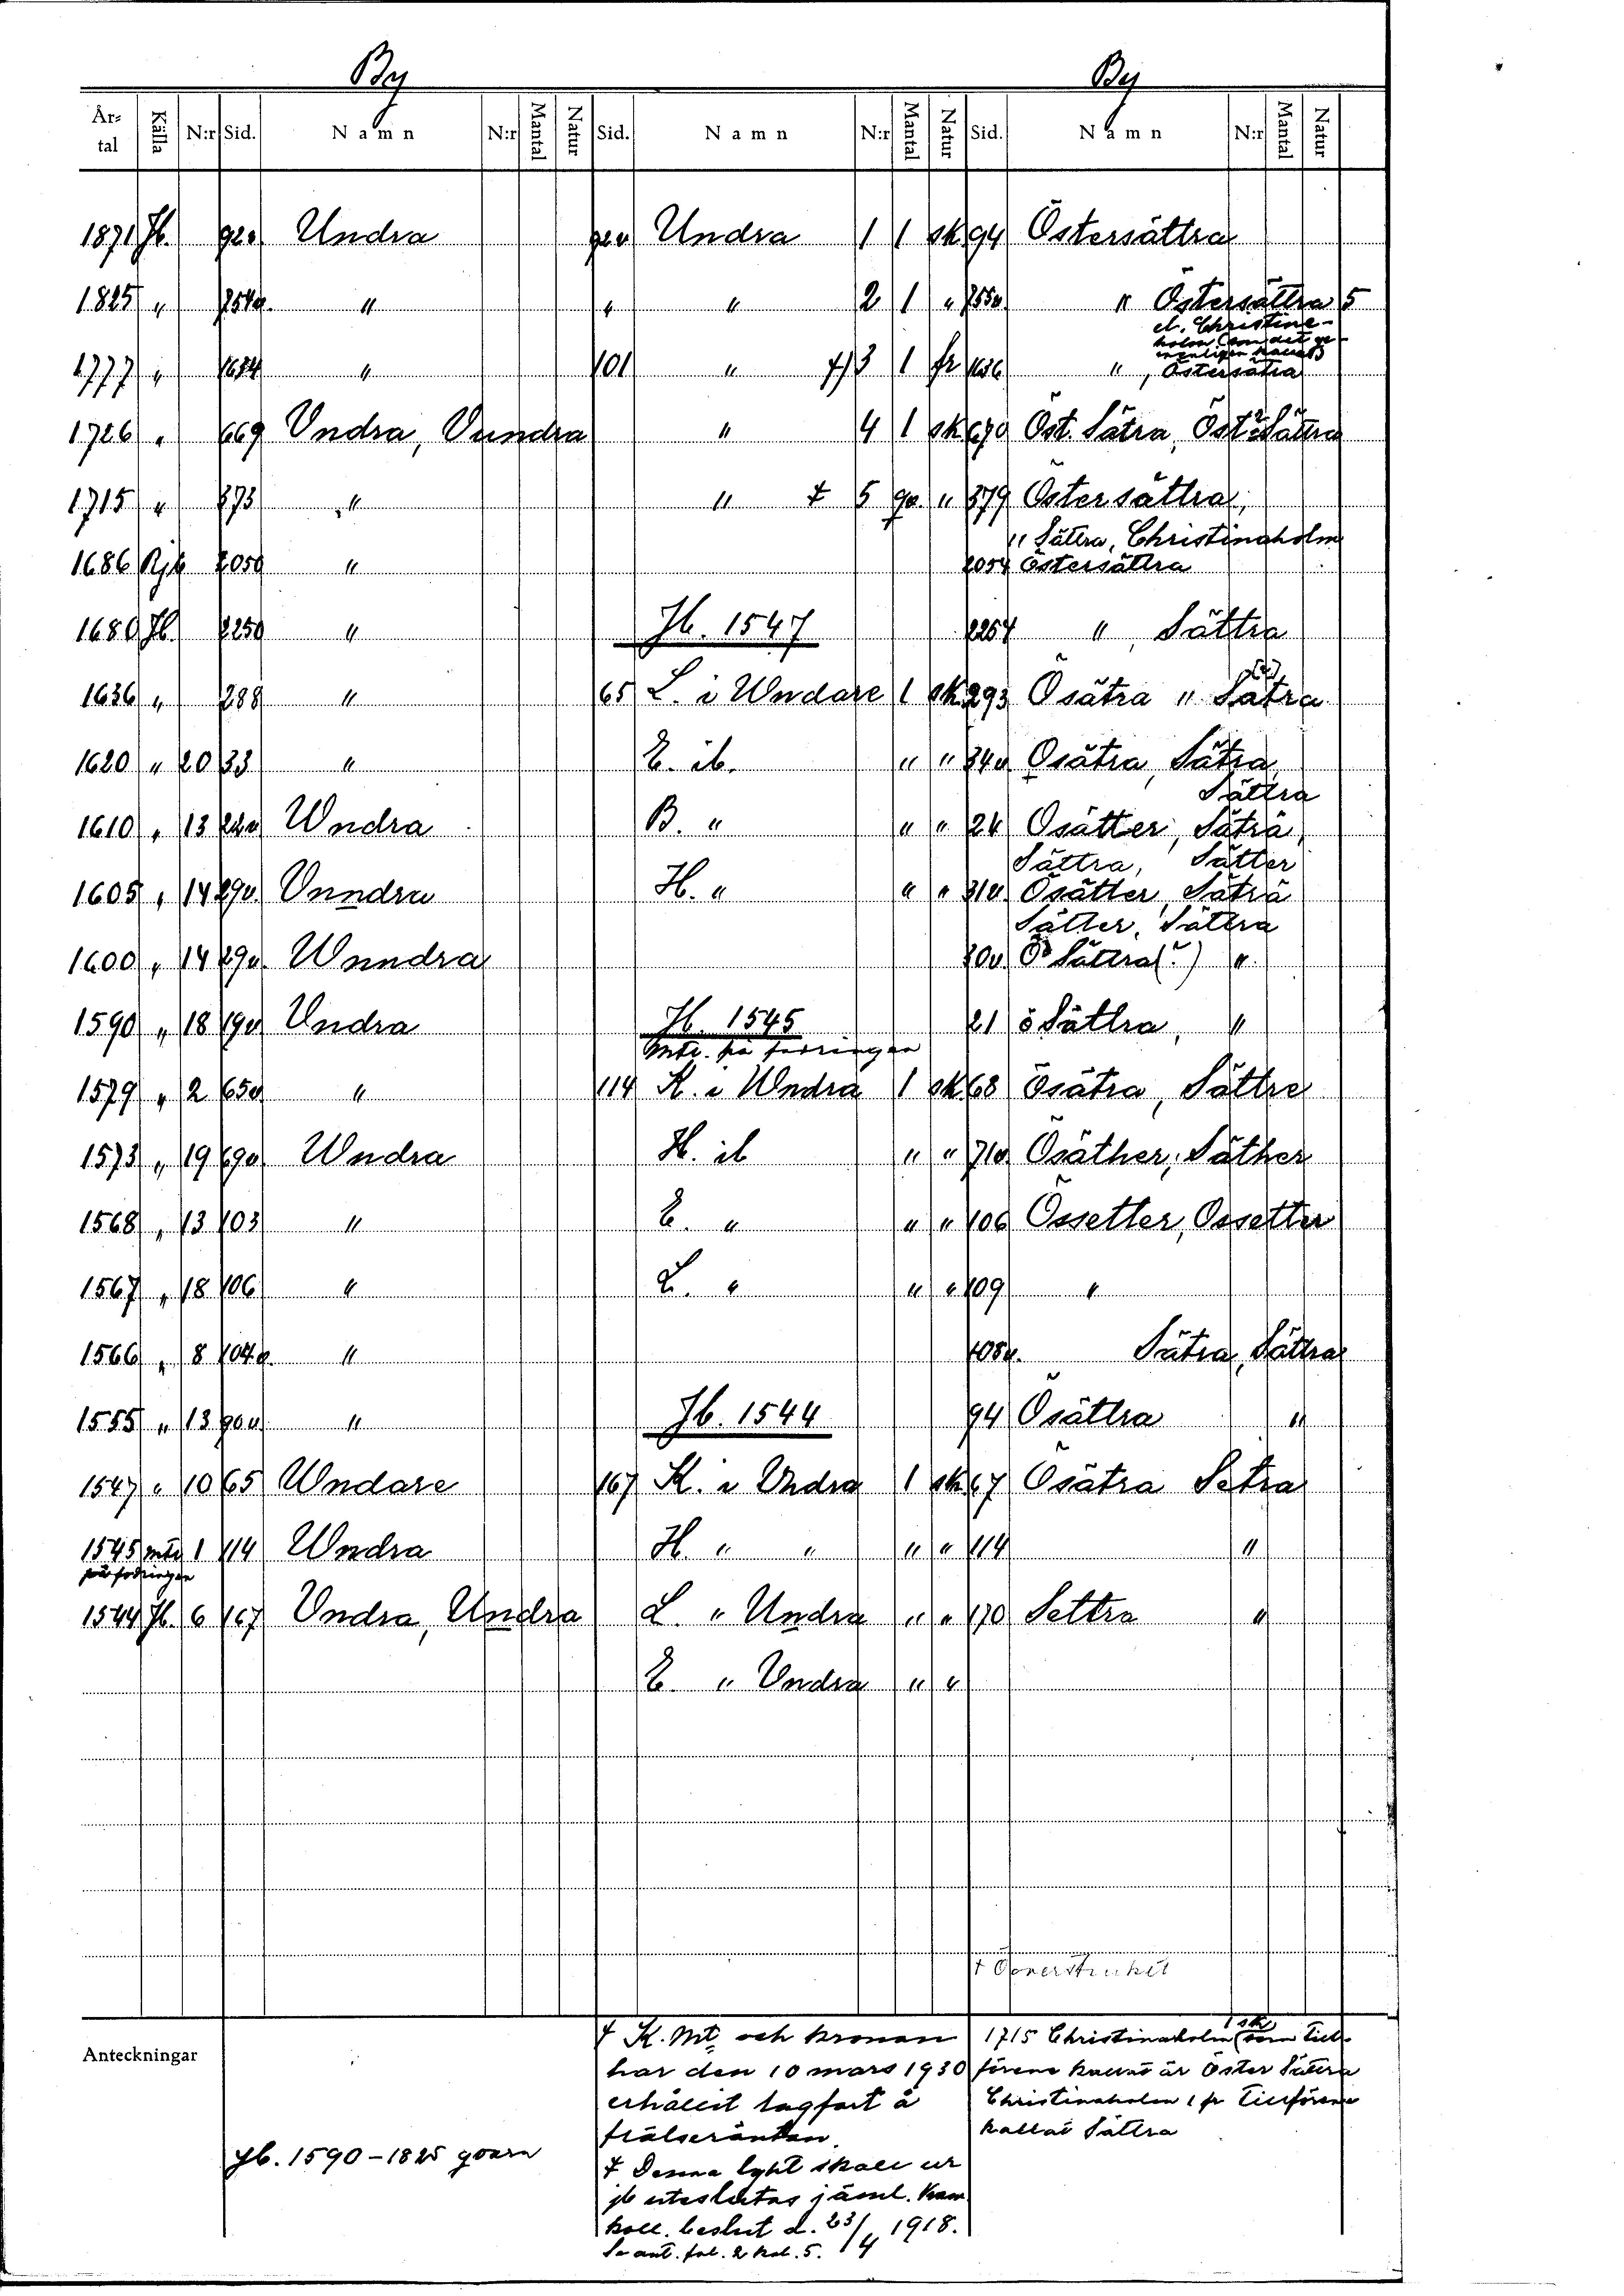 By By
År-tal Källa N:r Sid. Namn N:r Mantal Natur Sid. Namn N:r Mantal Natur Sid. Namn N:r Mantal Natur
1871 Jb. Undra Undra 1 1 sk 94 Östersättra
1825 " " " " 2 1 " " Östersättra 5
el. Christine-
holm (som det ge-
menligen kallas)
1777 " 1634 " 101 " +) 3 1 fr 1636 " , Östersätra
1726 " 669 Undra, Vundra " 4 1 sk 670 Öst. Sätra, Öst. Sättra
1715 " 873 " " ‡ 5 " 879 Östersättra,
" Sättra, Christinaholm
1686 Rjb 2050 " 2054 Östersättra
1680 Jb. 2250 " Jb. 1547 2254 " , Sättra
1636 " 288 " 65 L. i Undare 1 sk 293 Ösätra " Sätra
1620 " 20 33 " E. ib. " " 34v Ösätra, Sätra,
Sättra
1610 " 13 Undra B. " " " 24 Ösätter, Säträ,
Sättra, Sätter
1605 " 14 29v. Vnndra H. " " " 31v. Ösätter, Säträ
Sätter, Sättra
1600 " 14 29v. Wnndra 30v. Ö Sättra(?) "
1590 " 18 19v Undra Jb. 1545 21 ö Sättra, "
1579 " 2 65v " 114 K. i Undra 1 sk 68 Ösätra, Sättre
1573 " 19 69v Undra H. ib " " 71v Ösäther, Säther
1568 " 13 103 " E. " " " 106 Össetter, Ossetter
1567 " 18 106 " L. " " " 109 "
1566 " 8 104v. " 108v. Sätra, Sättra
1555 " 13 90v. " Jb. 1544 94 Ösättra "
1547 " 10 65 Undare 167 K. i Undra 1 sk 67 Ösätra Setra
1545 mtl 1 114 Undra H. " " " " 114 "
1544 Jb. 6 167 Vndra, Undra L. " Undra " " 170 Settra "
E. " Undra " "
Anteckningar
Jb. 1590-1825 qvarn
† K. Mt. och kronan
har den 10 mars 1930
erhållit lagfart å
frälseräntan.
‡ Denna lght skall ur
jb uteslutas jäml. Kam
koll. beslut d. 23/4 1918.
Se ant. fol. 2 kol. 5.
1715 Christinaholm 1 sk (som till-
förene kallat är Öster Sättra
Christinaholm 1 fr tillförene
kallat Sättra